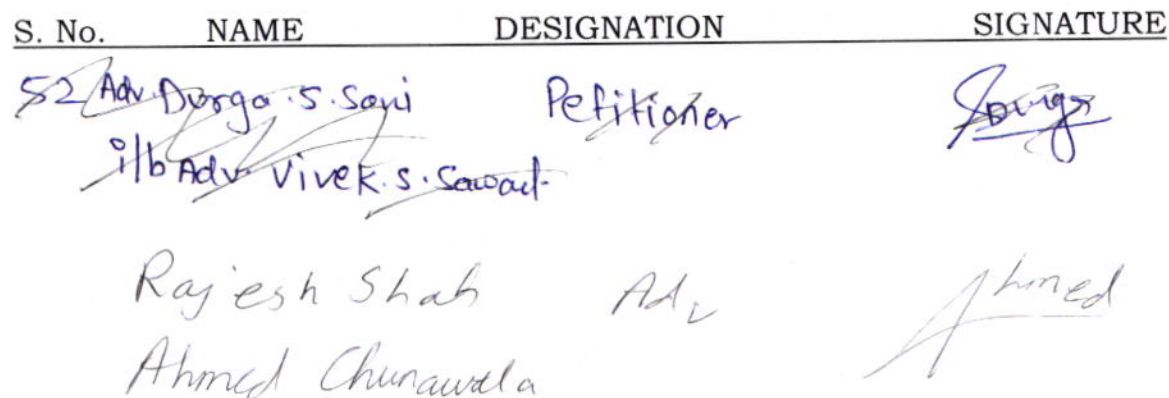 S. No. NAME DESIGNATION SIGNATURE
52 Adv. Durga .S. Soni Petitioner Durga
i/b Adv. Vivek. S. Sawant.
Rajesh Shah Adv Ahmed
Ahmed Chunawala